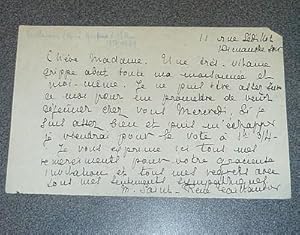 11 rue Sédillot
Dimanche soir
Chère Madame. Une très vilaine
grippe abat toute ma maisonnée et
moi-même. Je ne puis être assez sûre
de moi pour me promettre de venir
déjeuner chez vous Mercredi. Si je
suis assez bien et puis m'échapper
je viendrai pour le vote
Je vous exprime ici tous mes
remerciements pour votre gracieuse
invitation et tous mes regrets avec
tous mes sentiments sympathiques
M. Saint-René Taillandier